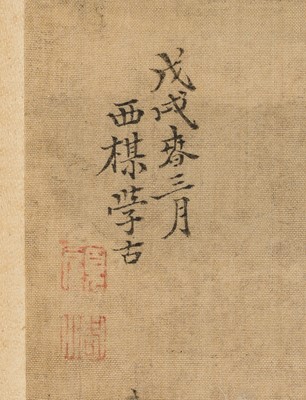 戊戌春三月
西楳学古